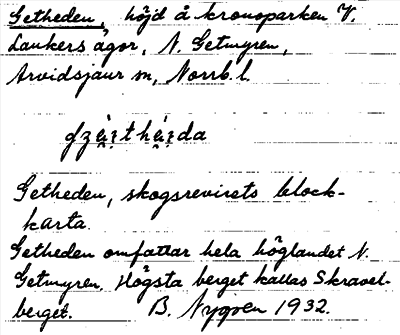 Getheden, höjd å kronoparken V.
Lankers ägor, N. Getmyren,
Arvidsjaur sn, Norrb. l.
Getheden, skogsrevirets block-
karta.
Getheden omfattar hela höglandet N.
Getmyren. Högsta berget kallas Skravel-
berget. B. Nygren 1932.